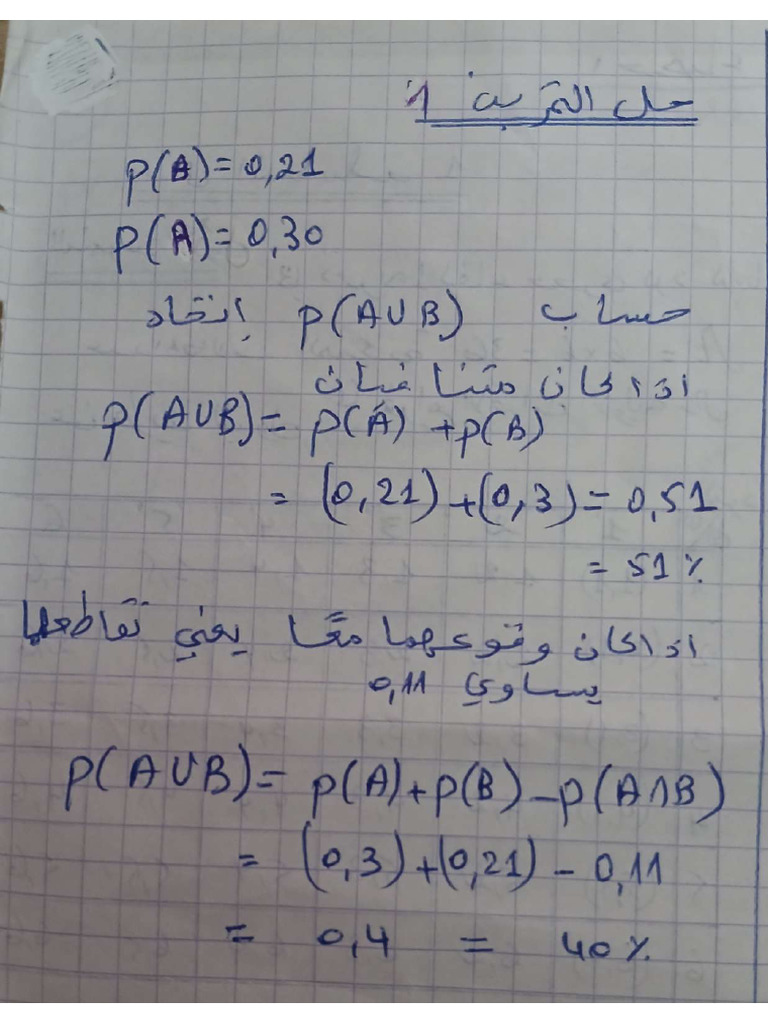 حل التمرين 1
p(B)=0,21
p(A)=0,30
حساب p(A∪B) إتحاد
اذا كان متنافيان
p(A∪B)= p(A) +p(B)
= (0,21)+(0,3)=0,51
= 51%
اذا كان وقوعهما معًا يعني تقاطعهما
يساوي 0,11
p(A∪B)= p(A)+p(B)-p(A∩B)
= (0,3)+(0,21)-0,11
= 0,4 = 40%